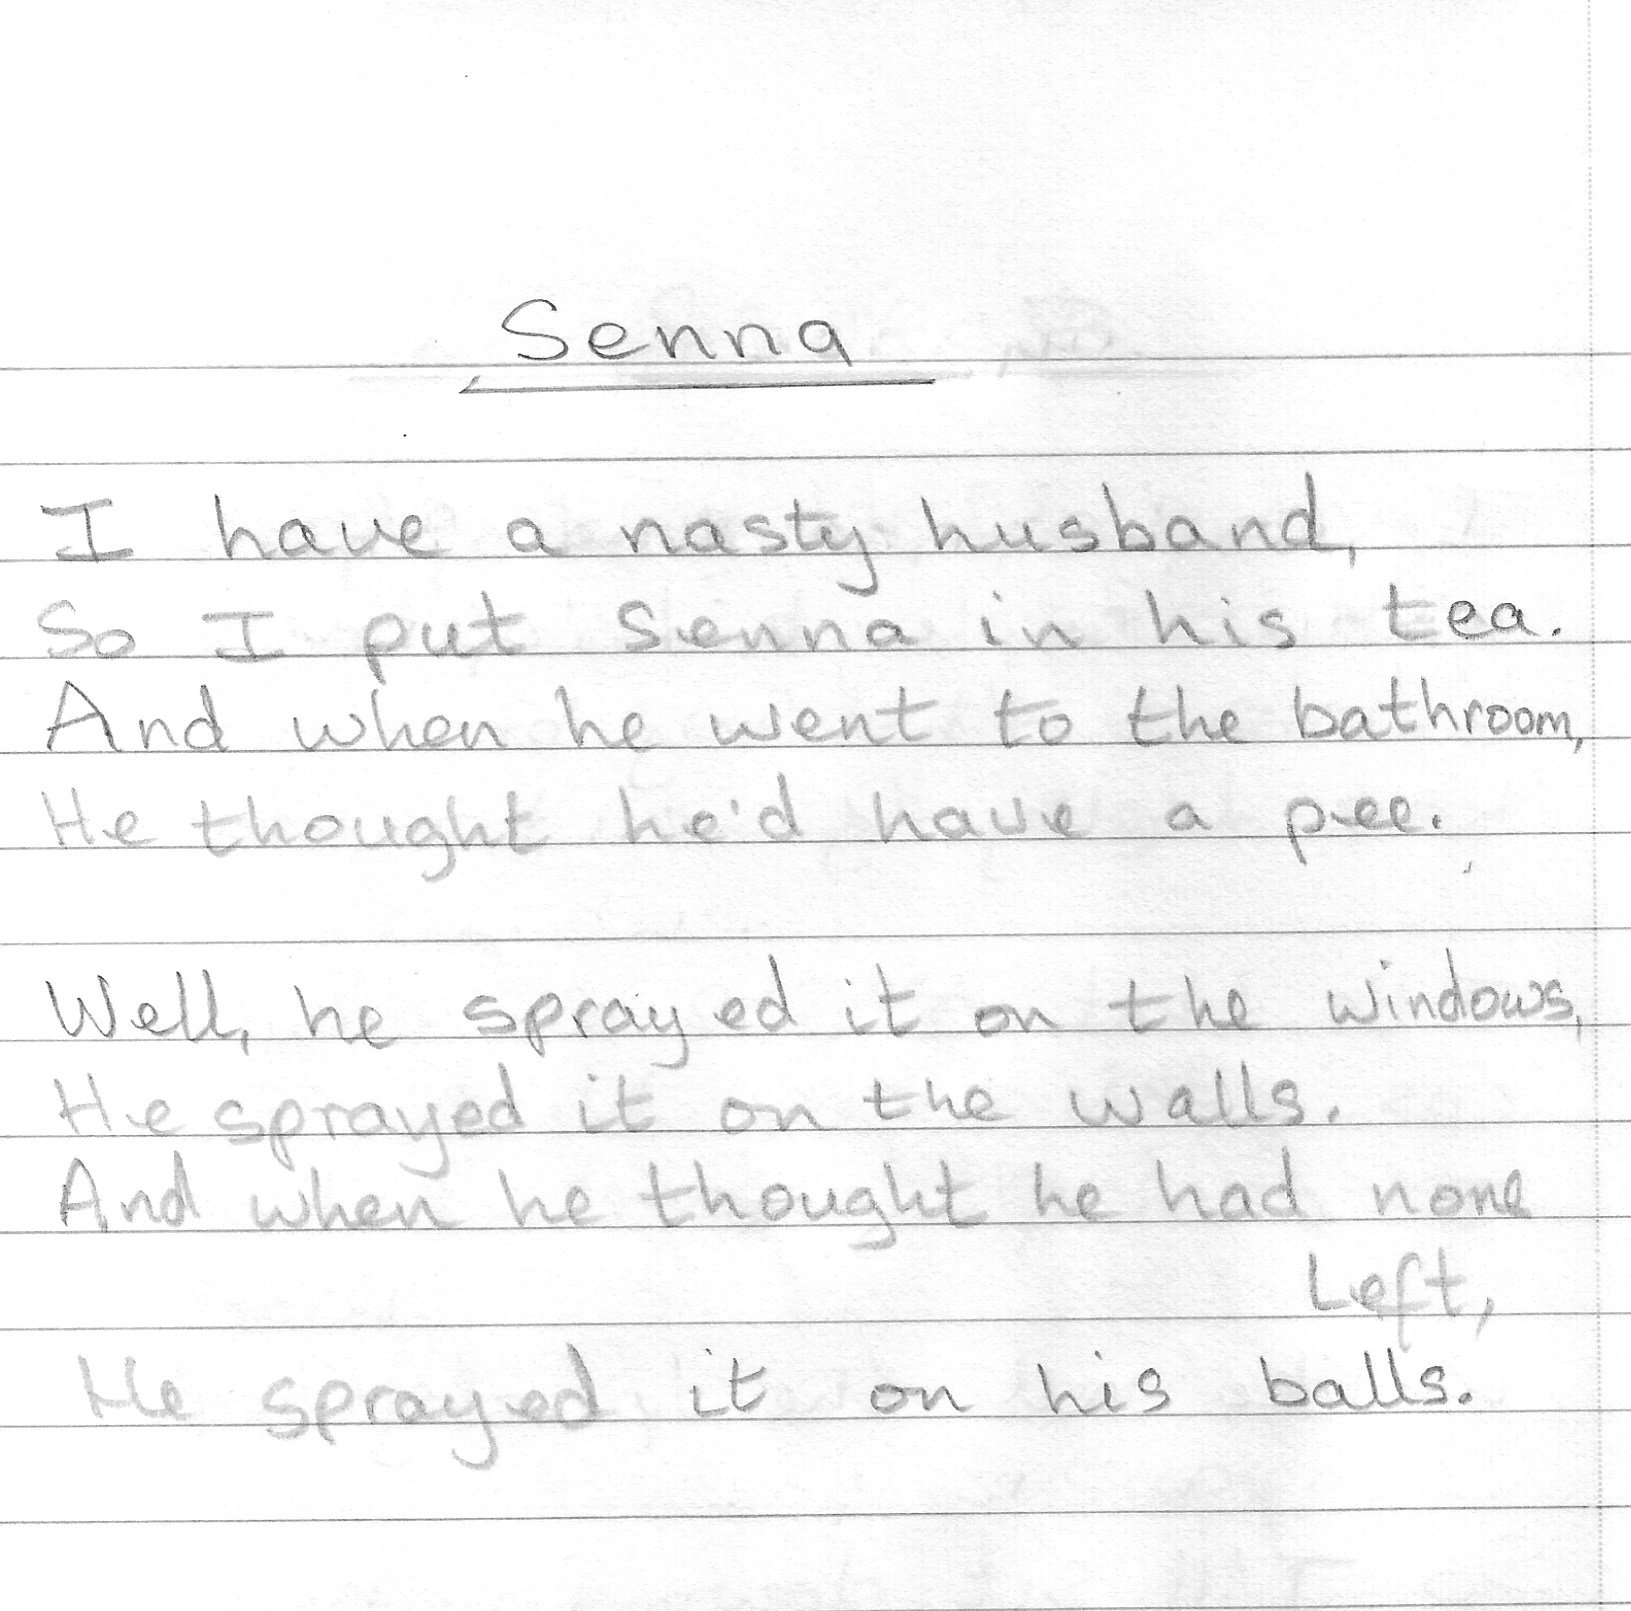 Senna
I have a nasty husband,
So I put Senna in his tea.
And when he went to the bathroom,
He thought he'd have a pee.
Well, he sprayed it on the windows,
He sprayed it on the walls.
And when he thought he had none
Left,
He sprayed it on his balls.